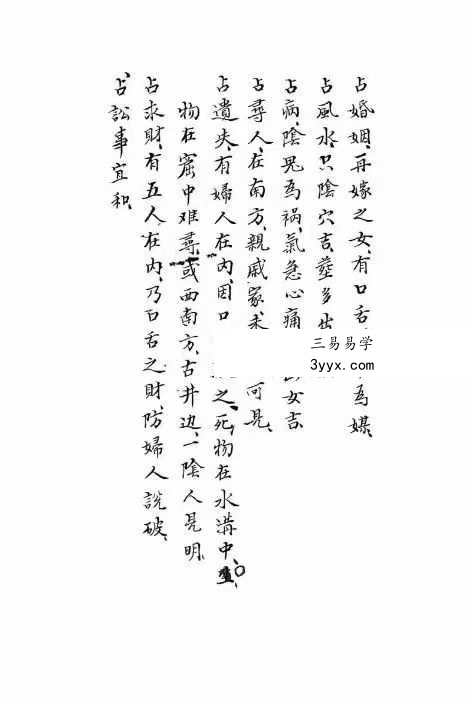 占婚姻、再嫁之女、有口舌、為媒、
占風水、只陰穴吉、葬多出
占病、陰鬼為祸、氣急心痛女吉
占尋人、在南方、親戚家可見、
占遺失、有婦人在內、因口之、死物在水溝中、
物在窟中难尋、或西南方、古井边、一陰人見明、
占求財、有五人在內、乃口舌之財、防婦人說破、
占訟事宜和、
三易易学
3yyx.com